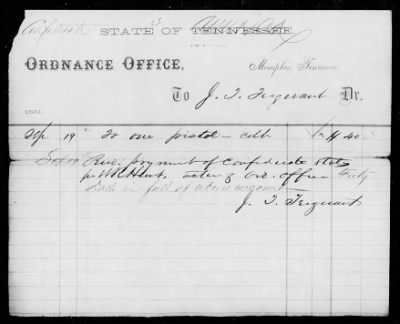 Confederate STATE OF TENNESSEE
ORDNANCE OFFICE,
Memphis, Tennessee,
To J. T. Trezevant Dr.
Sep 19 To one pistol - colt $ 40
Sep 19 Rec. payment of Confederate States
Actng Ord. officer Forty
Dolls in full of above account
J. T. Trezevant